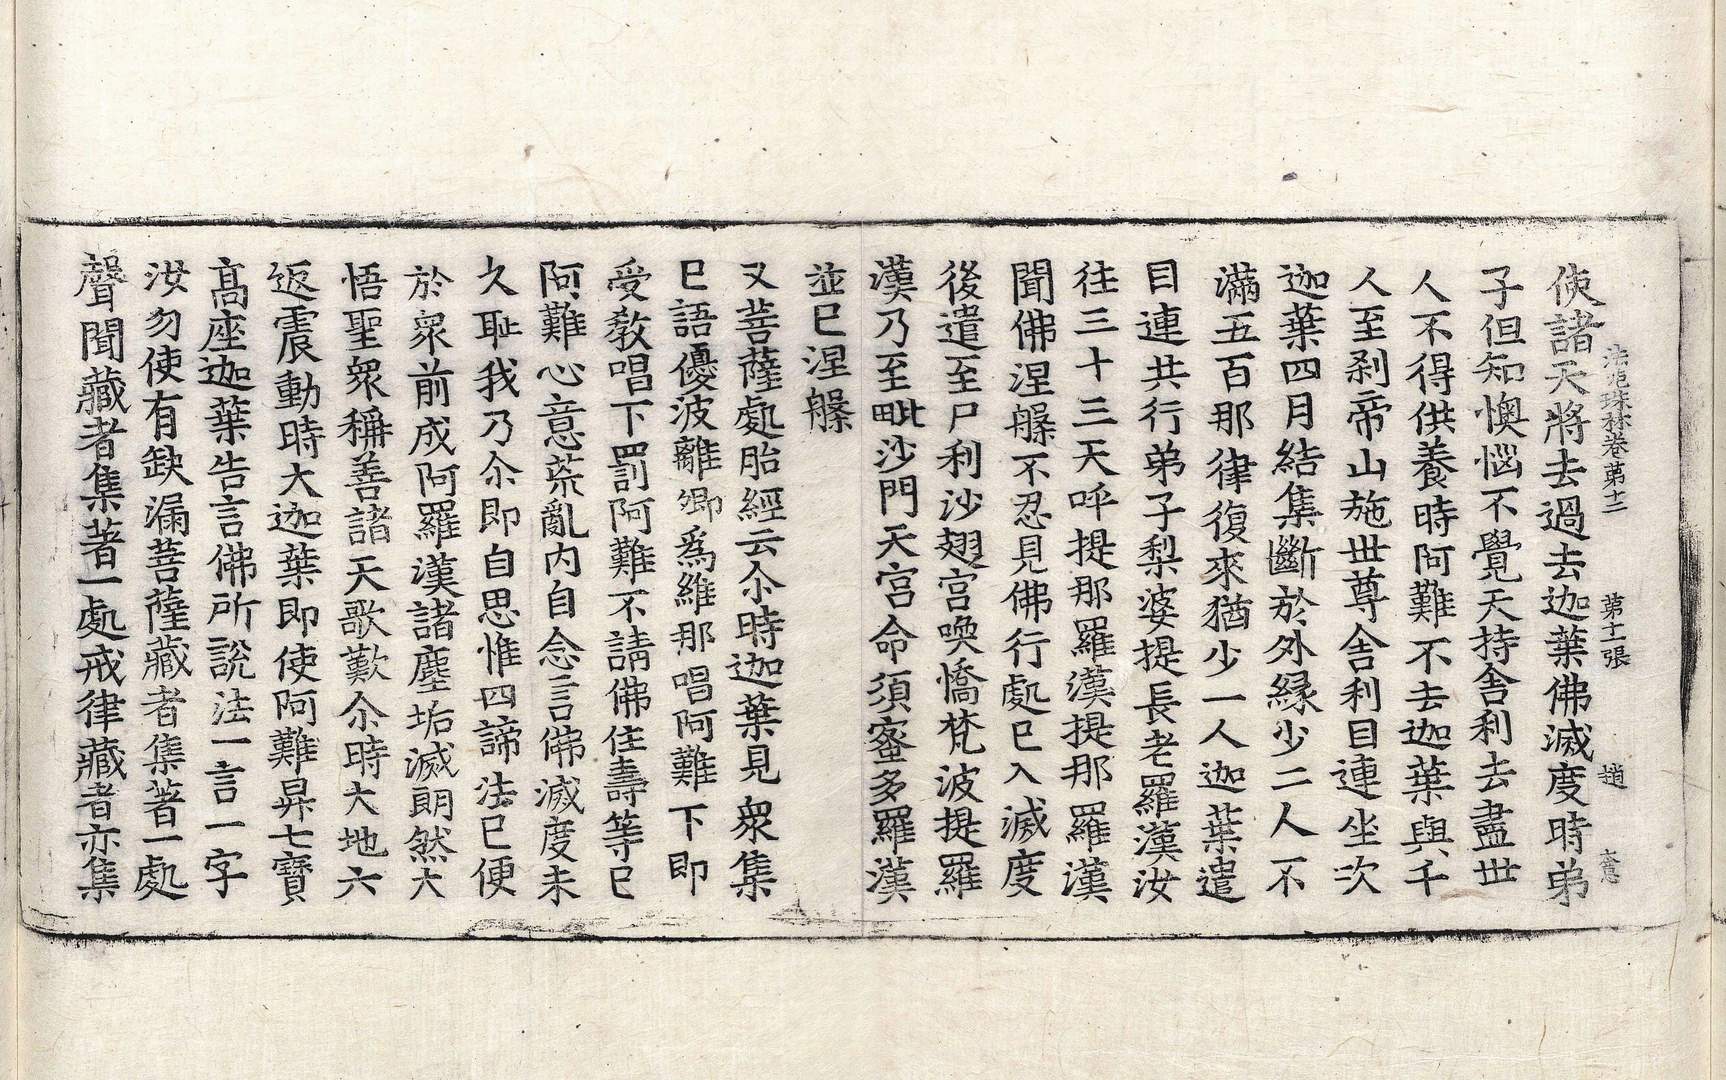 法苑珠林卷第十二　第十一張　趙
使諸天將去過去迦葉佛滅度時弟
子但知懊惱不覺天持舍利去盡世
人不得供養時阿難不去迦葉與千
人至刹帝山施世尊舍利目連坐次
迦葉四月結集斷於外緣少二人不
滿五百那律復來猶少一人迦葉遣
目連共行弟子梨婆提長老羅漢汝
往三十三天呼提那羅漢提那羅漢
聞佛涅槃不忍見佛行處已入滅度
後遣至尸利沙翅宮喚憍梵波提羅
漢乃至毗沙門天宮命須蜜多羅漢
並已涅槃
又菩薩處胎經云尒時迦葉見衆集
已語優波離卿爲維那唱阿難下即
受教唱下罰阿難不請佛住壽等已
阿難心意荒亂内自念言佛滅度未
久恥我乃尒即自思惟四諦法已便
於衆前成阿羅漢諸塵垢滅朗然大
悟聖衆稱善諸天歌歎尒時大地六
返震動時大迦葉即使阿難昇七寶
高座迦葉告言佛所說法一言一字
汝勿使有缺漏菩薩藏者集著一處
聲聞藏者集著一處戒律藏者亦集